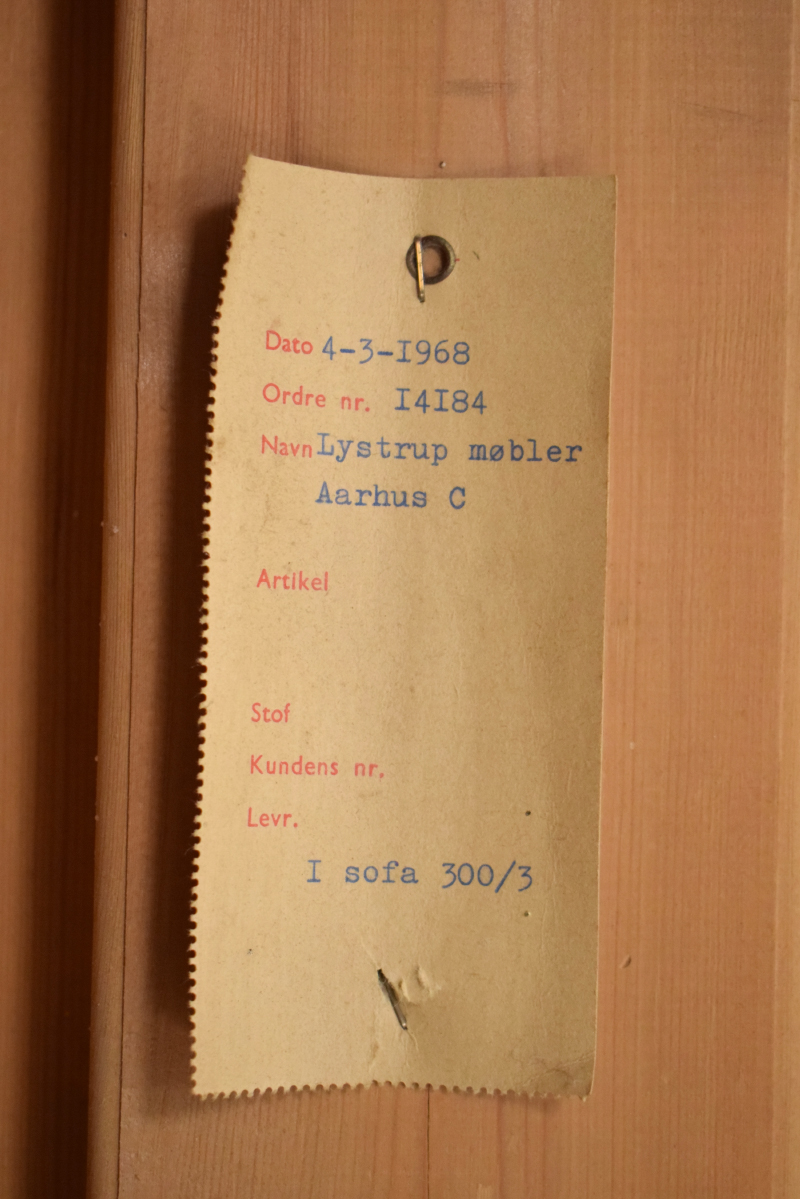 Dato 4-3-I968
Ordre nr. I4I84
Navn Lystrup møbler
Aarhus C
Artikel
Stof
Kundens nr.
Levr.
I sofa 300/3